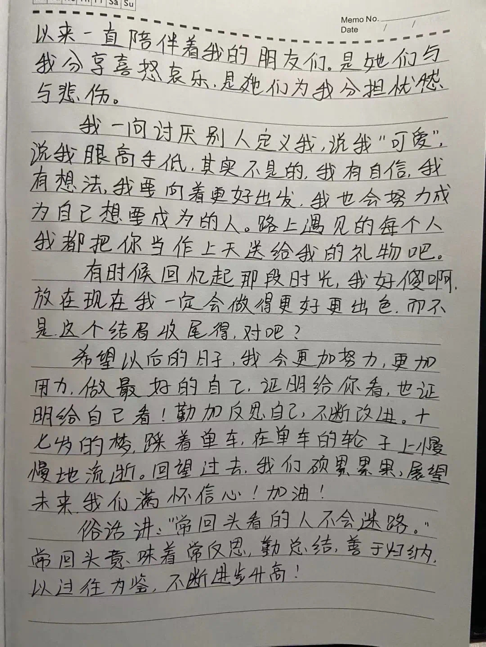 Sa Su
Memo No.
Date / /
以来一直陪伴着我的朋友们。是她们与
我分享喜怒哀乐,是她们为我分担忧愁
与悲伤。
我一向讨厌别人定义我,说我“可爱”,
说我眼高手低,其实不是的,我有自信,我
有想法,我要向着更好出发,我也会努力成
为自己想要成为的人。路上遇见的每个人
我都把你当作上天送给我的礼物吧。
有时候回忆起那段时光,我好傻啊,
放在现在我一定会做得更好更出色,而不
是这个结局收尾得,对吧?
希望以后的日子,我会更加努力,更加
用力,做最好的自己,证明给你看,也证
明给自己看!勤加反思自己,不断改进。十
七岁的梦,踩着单车,在单车的轮子上慢
慢地流逝。回望过去,我们硕累累果,展望
未来,我们满怀信心!加油!
俗话讲:“常回头看的人不会迷路。”
常回头意味着常反思,勤总结,善于归纳,
以过往为鉴,不断进步升高!